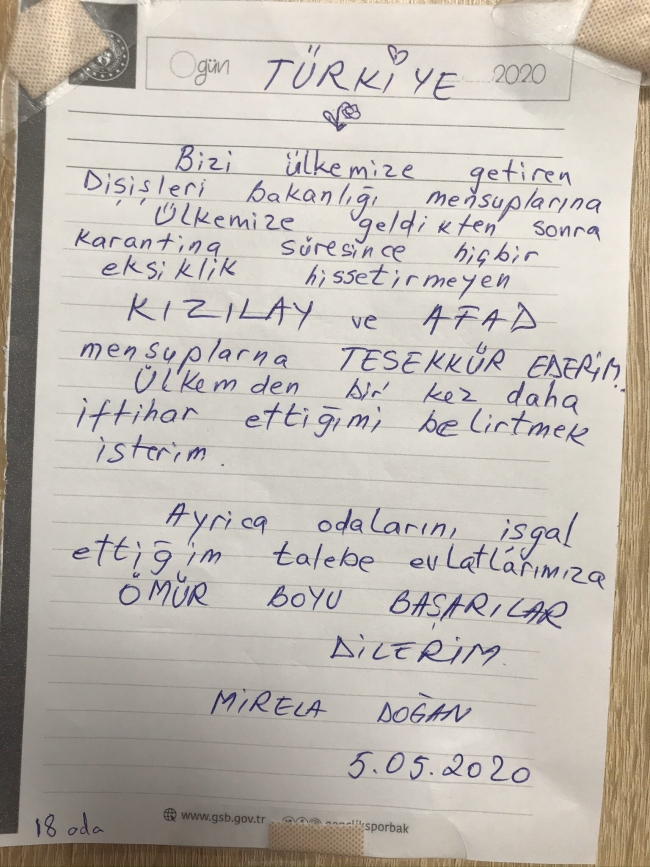 gün TÜRKİYE 2020
Bizi ülkemize getiren
Dişişleri bakanlığı mensuplarına
Ülkemize geldikten sonra
karantina süresince hiçbir
eksiklik hissetirmeyen
KIZILAY ve AFAD
mensuplarna TESEKKÜR EDERİM.
Ülkemden bir kez daha
iftihar ettiğimi belirtmek
isterim.
Ayrica odalarını işgal
ettiğim talebe evlatlarımıza
ÖMÜR BOYU BAŞARILAR
DİLERİM
MİRELA DOĞAN
5.05.2020
www.gsb.gov.tr gençliksporbak
18 oda